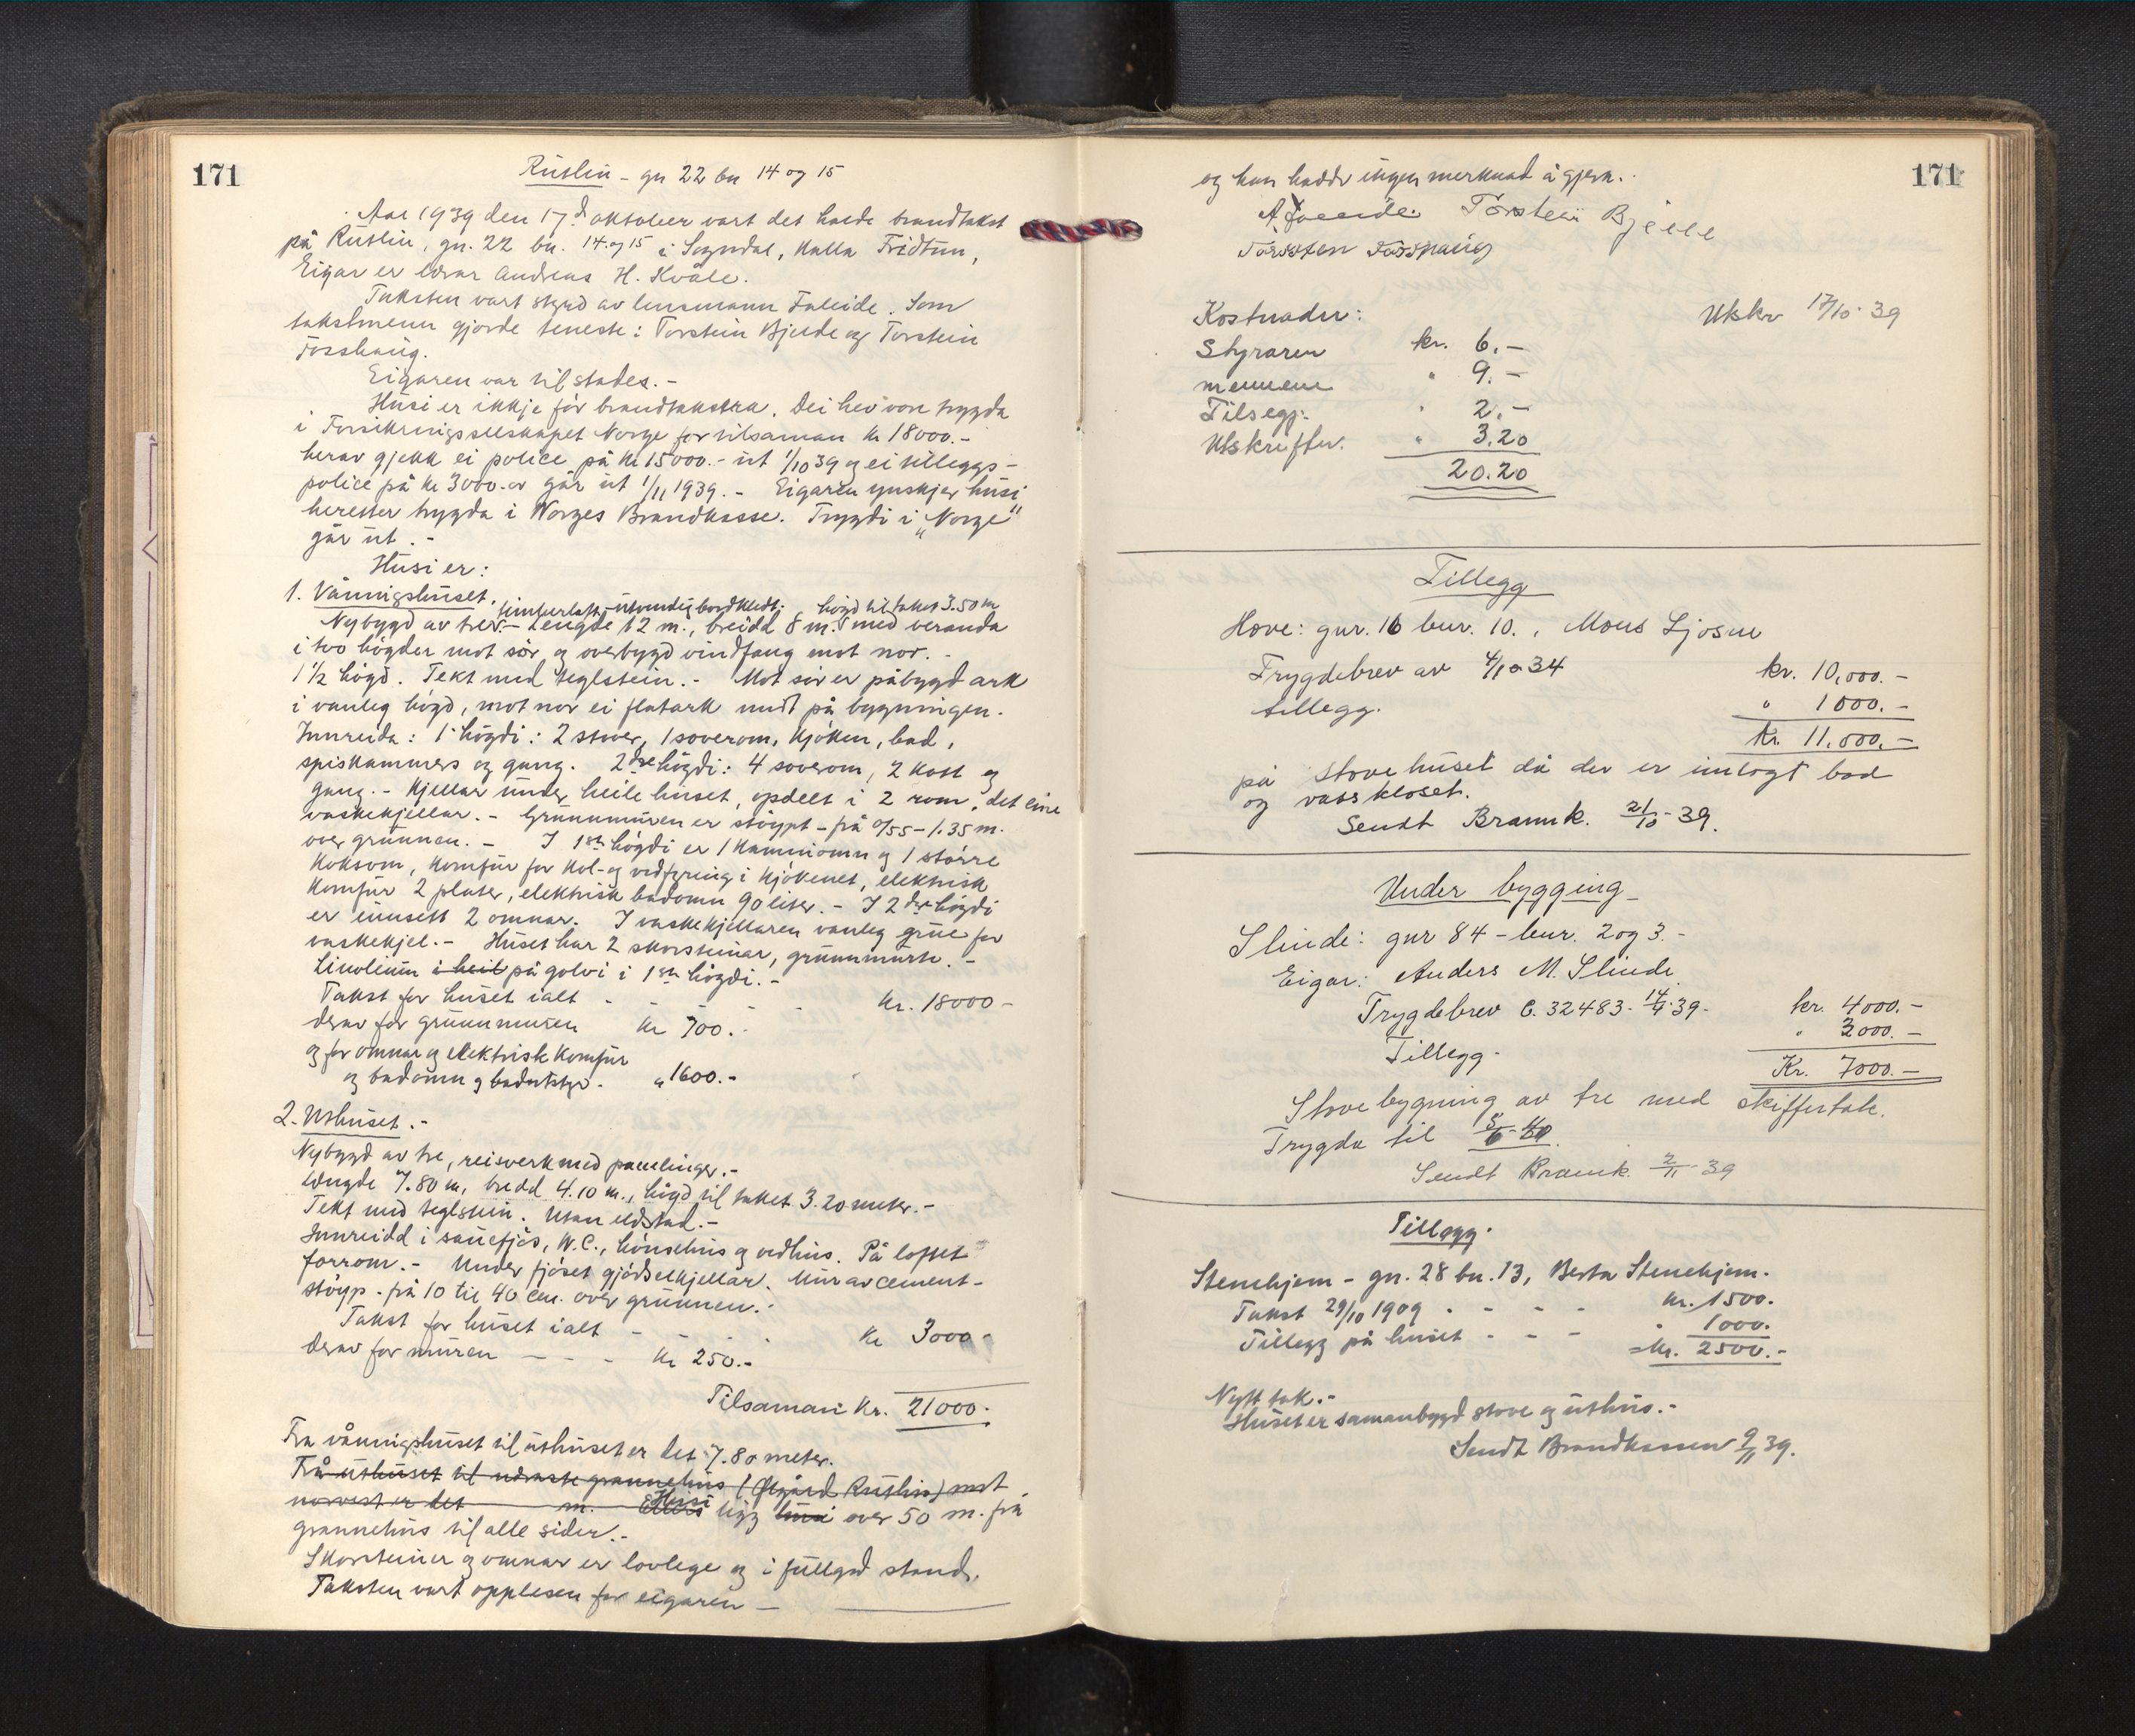 171
Rutlin - gn 22 bn 14 og 15
Aar 1939 den 17d oktober vart det halde brandtakst
på Rutlin, gn. 22 bn. 14 og 15 i Sogndal, kalla Fridtun,
Eigar er lærar Andreas H. Kvåle.
Taksten vart styrd av lensmann Faleide. Som
takstmenn gjorde teneste: Torstein Bjelde og Torstein
Fosshaug.
Eigaren var tilstades. -
Husi er ikkje för brandtakstra. Dei hev vore trygda
i Forsikringsselskapet Norge for tilsaman kr 18000.-
herav gjekk ei police på kr 15000.- ut 1/10 39 og ei tilleggs-
police på kr 3000.- går ut 1/11 1939. - Eigaren ynskjer husi
heretter trygda i Norges Brandkasse. Trygdi i „Norge"
går ut. -
Husi er:
1. Våningshuset.
timberlaft, utvendig bordkledt. högd til taket 3.50 m
Nybygd av tre. - Lengde 12 m., breidd 8 m. med veranda
i tvo högder mot sör og overbygd vindfang mot nor. -
1½ högd. Tekt med teglstein. - Mot sör er påbygd ark
i vanleg högd, mot nor ei flatark midt på bygningen.
Innreida: 1. högdi: 2 stover, 1 soverom, kjöken, bad,
spiskammers og gang. 2dre högdi: 4 soverom, 2 kott og
gang. - Kjellar under heile huset, opdelt i 2 rom, det eine
vaskekjellar. - Grunnmuren er stöypt - frå 0/55 - 1.35 m.
over grunnen. - I 1ste högdi er 1 kaminomn og 1 större
koksomn, komfur for kol- og vedfyring i kjökenet, elektrisk
komfur 2 plater, elektrisk badomn 90 liter. - I 2dre högdi
er innsett 2 omnar. I vaskekjellaren vanleg grue for
vaskekjel. - Huset har 2 skorsteinar, grunnmurte. -
Linoleum i heil på golvi i 1ste högdi. -
Takst for huset ialt - - - - kr. 18000 -
derav for grunnmuren kr 700. -
og for omnar og elektrisk komfur
og badomn og badutstyr. " 1600.-
2. Uthuset. -
Nybygd av tre, reisverk med panelinger. -
Lengde 7.80 m, bredd 4.10 m., högd til taket 3.20 meter. -
Tekt med teglstein. Utan eldstad. -
Innreidd i sauefjös, W.C., hönsehus og vedhus. På loftet
forrom. - Under fjöset gjödselkjellar. Mur av cement-
stöyp - frå 10 til 40 cm. over grunnen. -
Takst for huset ialt - - - - kr 3000 -
derav for muren - - - kr 250.-
Tilsaman kr. 21000.-
Fra våningshuset til uthuset er det 7.80 meter.
Frå uthuset til næraste grannehus (Ølgård Rutlin) mot
norvest er det m. Ellers Husi ligg husi over 50 m. frå
grannehus til alle sider. -
Skorsteiner og omnar er lovlege og i fullgod stand.
Taksten vart opplesen for eigaren -
171
og han hadde ingen merknad å gjera.
A Faleide. Torstein Bjelde
Torstein Fosshaug
Utskr 17/10-39
Kostnader:
Styraren kr. 6.-
mennene " 9.-
Tilsegj. " 2.-
Utskrifter. " 3.20
20.20
Tillegg
Hove: gnr. 16 bnr. 10., Mons Ljosne
Trygdebrev av 4/10-34 kr. 10,000.-
tillegg. " 1000.-
Kr. 11.000.-
på stovehuset då der er innlagt bad
og vassklosét.
Sendt Brannk. 21/10-39.
Under bygging
Slinde: gnr 84 - bnr. 2 og 3. -
Eigar: Anders M. Slinde
Trygdebrev C. 32483. 14/4-39 - kr. 4000.-
Tillegg. " 3000.-
Kr. 7000.-
Stovebygning av tre med skiffertak.
Trygda til 5/6-40.
Sendt Brannk. 2/11-39
Tillegg.
Stenehjem - gn. 28 bn. 13, Berta Stenehjem.
Takst 29/10 1909 . - - - kr. 1500.
Tillegg på huset - - - " 1000.
= kr. 2500.-
Nytt tak. -
Huset er samanbygd stove og uthus. -
Sendt Brandkassen 9/11 39.